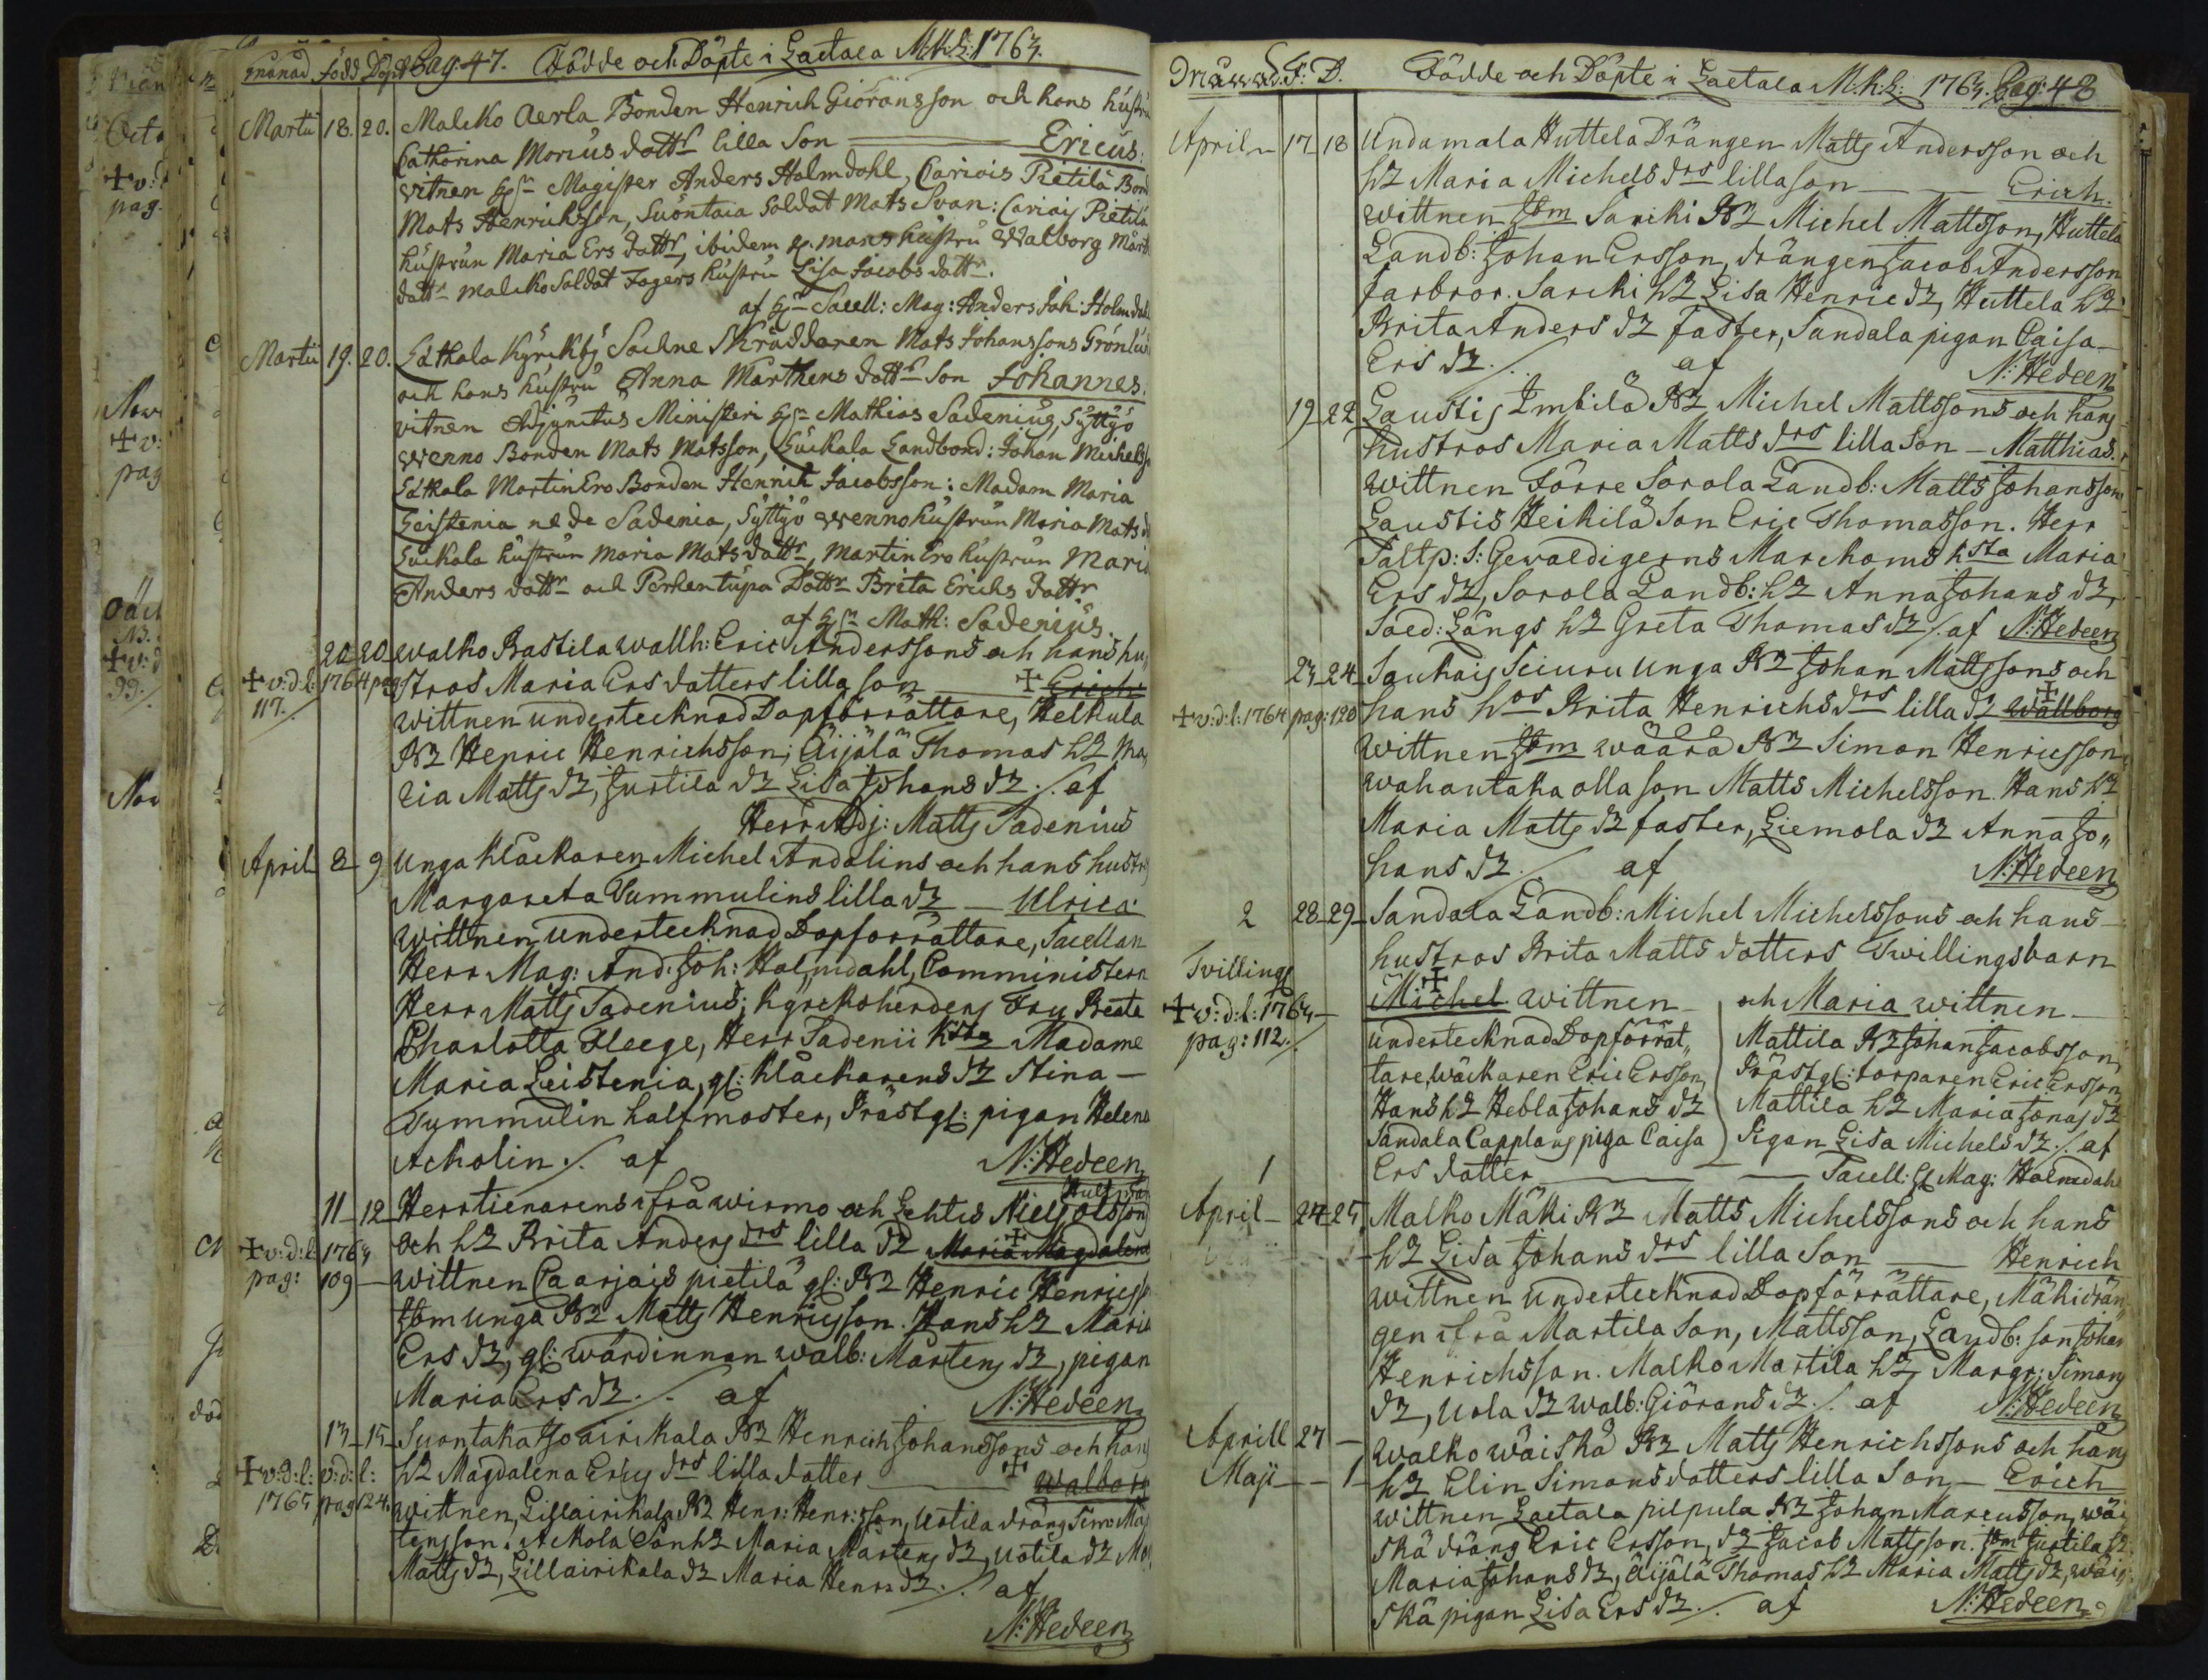 Månad född Döpt Pag. 47. Födde och Döpte i Laetala M.K.L: 1763.
Martii 18. 20. Malcko Aerla Bonden Henrich Giöransson och hans hustru
Catharina Marcus dottr lilla Son Ericus.
vitnen Hr Magister Anders Holmdahl, Cariois Pietilä Bond
Mats Henricksson, Suontaca Soldat Mats Svan: Cariais Pietilä
hustrun Maria Ers dottr, ibidem hustru Walborg Mårt
dottr Malcko Soldat Fagers hustru Lisa Jacobs dottr.
af Hr Sacell: Mag: Anders Joh: Holmdahl
Martii 19. 20. Låtkala Kyrckby Sockne Skräddaren Mats Johanssons Grönlund
och hans hustru Anna Marthens dottr Son Johannes.
vitnen Adjunctus Ministeri Hr Mathias Sadenius, Syttyö
Wenno Bonden Mats Matsson, Suckala Landbond: Johan Michelss
Låtkala Martin Ero Bonden Henrich Jacobsson: Madam Maria
Leistenia née de Sadenia, Syttyö Wenno hustrun Maria Mats d
Suckala hustrun Maria Matsdottr, Martin Ero hustrun Maria
Anders dottr och Perkentupa Dottr Brita Erichs dottr
af Hr Math: Sadenius.
20 20 Walko Rastila wallh: Eric Anderssons och hans hu„
+ v: d: l: 1764 pag 117. stros Maria Ers dotters lilla son + Erich
wittnen undertecknad Dopförrättare, Helkula
Bz Henric Henrichsson, Äijälä Thomas hz Ma„
ria Matts dz, Juttila dz Lisa Johans dz ./. af
Herr Adj: Matts Sadenius
April 8 9 Unga Klåckaren Michel Andelins och hans hustr
Margareta Tummulins lilla dz — Ulrica
wittnen undertecknad Dopförrättare, Sacellan
Herr Mag: And: Joh: Holmdahl, Comministern
Herr Matts Sadenius, Kyrckoherdens Fru Beata
Charlotta Fleege, Herr Sadenii hsta Madame
Maria Leistenia, gl: Klåckarens dz Stina —
Tymmulin halfmoster, Prästgl: pigan Helena
Acholin ./. af N: Hedeen
11 12 Herrtienarens ifrå Wirmo och Lehtis Niels Olsson
+ v: d: l: 1763 och hz Brita Anders drs lilla dz + Maria Magdalena
pag: 109 — wittnen Caarjais pietilä gl: Bz Henric Henricss
Jtm unga Bz Matts Henricsson. Hans hz Maria
Ers dz, gl: wärdinnan walb: Mårtens dz, pigan
Maria Ers dz ./. af N: Hedeen
13 15 Suontaka Isoairikala Bz Henrich Johanssons och hans
+ v: d: l: v: d: l: hz Magdalena Erics drs lilla dotter + Walborg
1765 pag 124. wittnen, Lillairikala Bz Henr: Henr: sson, Uotila dräng Simo Mår
tensson. Ackola Son hz Maria Mårtens dz, Uotila dz
Matts dz, Lillairikala dz Maria Henrs dz ./. af
N: Hedeen
Månad. F: D. Födde och Döpte i Laetala M.K.L: 1763. Pag: 48
April 17 18 Undamala Huttela Drängen Matts Andersson och
hz Maria Michels drs lilla son — Erich.
wittnen Jtm Saricki Bz Michel Mattsson, Huttela
Landb: Johan Ersson, drängen Jacob Andersson
farbror. Saricki hz Lisa Henric dz, Huttela hz
Brita Anders dz faster, Sandala pigan Caisa
Ers dz ./. af N: Hedeen
19 22 Laustis Imbilä Bz Michel Mattssons och hans
hustros Maria Matts drs lilla Son — Matthias.
wittnen Förre Sorola Landb: Matts Johansson
Laustis Heikilä Son Eric Thomasson. Herr
Fältp: s: Gewaldigerns Marchoms hsta Maria
Ers dz, Sorola Landb: hz Anna Johans dz,
Soed: Långs hz Greta Thomas dz ./. af N: Hedeen
23 24 Saukais Seiuru unga Bz Johan Mattssons och
+ v: d: l: 1764 pag: 120 hans hos Brita Henrichs drs lilla dz + Wallborg
wittnen Jtm wäärä Bz Simon Henricsson
wahantaka olla son Matts Michelsson. Hans hz
Maria Matts dz faster, Liemola dz Anna Jo„
hans dz ./. af N: Hedeen
2 28 29 Sandala Landb: Michel Michelssons och hans
hustros Brita Matts dotters Twillingsbarn
Tvillings
+ v: d: l: 1763 pag: 112./.
+ Michel wittnen
undertecknad Dopförrät„
tare, wäckaren Eric Ersson,
Hans hz Hebla Johans dz
Sandala Capplans piga Caisa
Ers dotter
och Maria wittnen
Mattila Bz Johan Jacobsson,
Prästgl: torparen Eric Ersson
Mattila hz Maria Jonas dz
Pigan Lisa Michels dz ./. af
Sacell: Hr Mag: Holmdahl
1
April 24 25 Malko Mäki Bz Matts Michelssons och hans
hz Lisa Johans drs lilla Son — Henrich
wittnen undertecknad Dopförrättare, Mäki drän
gen ifrå Martila Son, Mattsson, Landb: son Johan
Henrichsson. Malko Martila hz Margr: Simons
dz, Uola dz walb: Giörans dz ./. af N: Hedeen
Aprill 27 — Walko wäiskä Bz Matts Henrichssons och hans
Maji — 1 hz Elin Simons dotters lilla Son — Erich
wittnen Laetala pilpula Bz Johan Marcusson, wäi
skä dräng Eric Ersson, dz Jacob Mattsson. Jtm Juttila hz
Maria Johans dz, Äijälä Thomas hz Maria Matts dz, wäi„
skä pigan Lisa Ers dz ./. af N: Hedeen